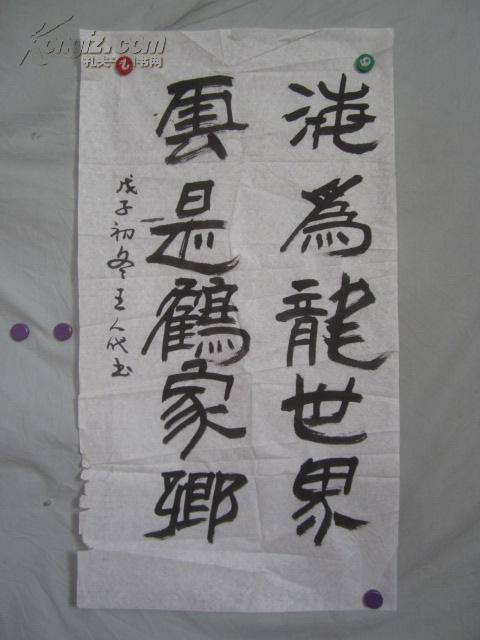 海為龍世界
雲是鶴家鄉
戊子初冬王人代书
Kongfz.com
孔夫子旧书网